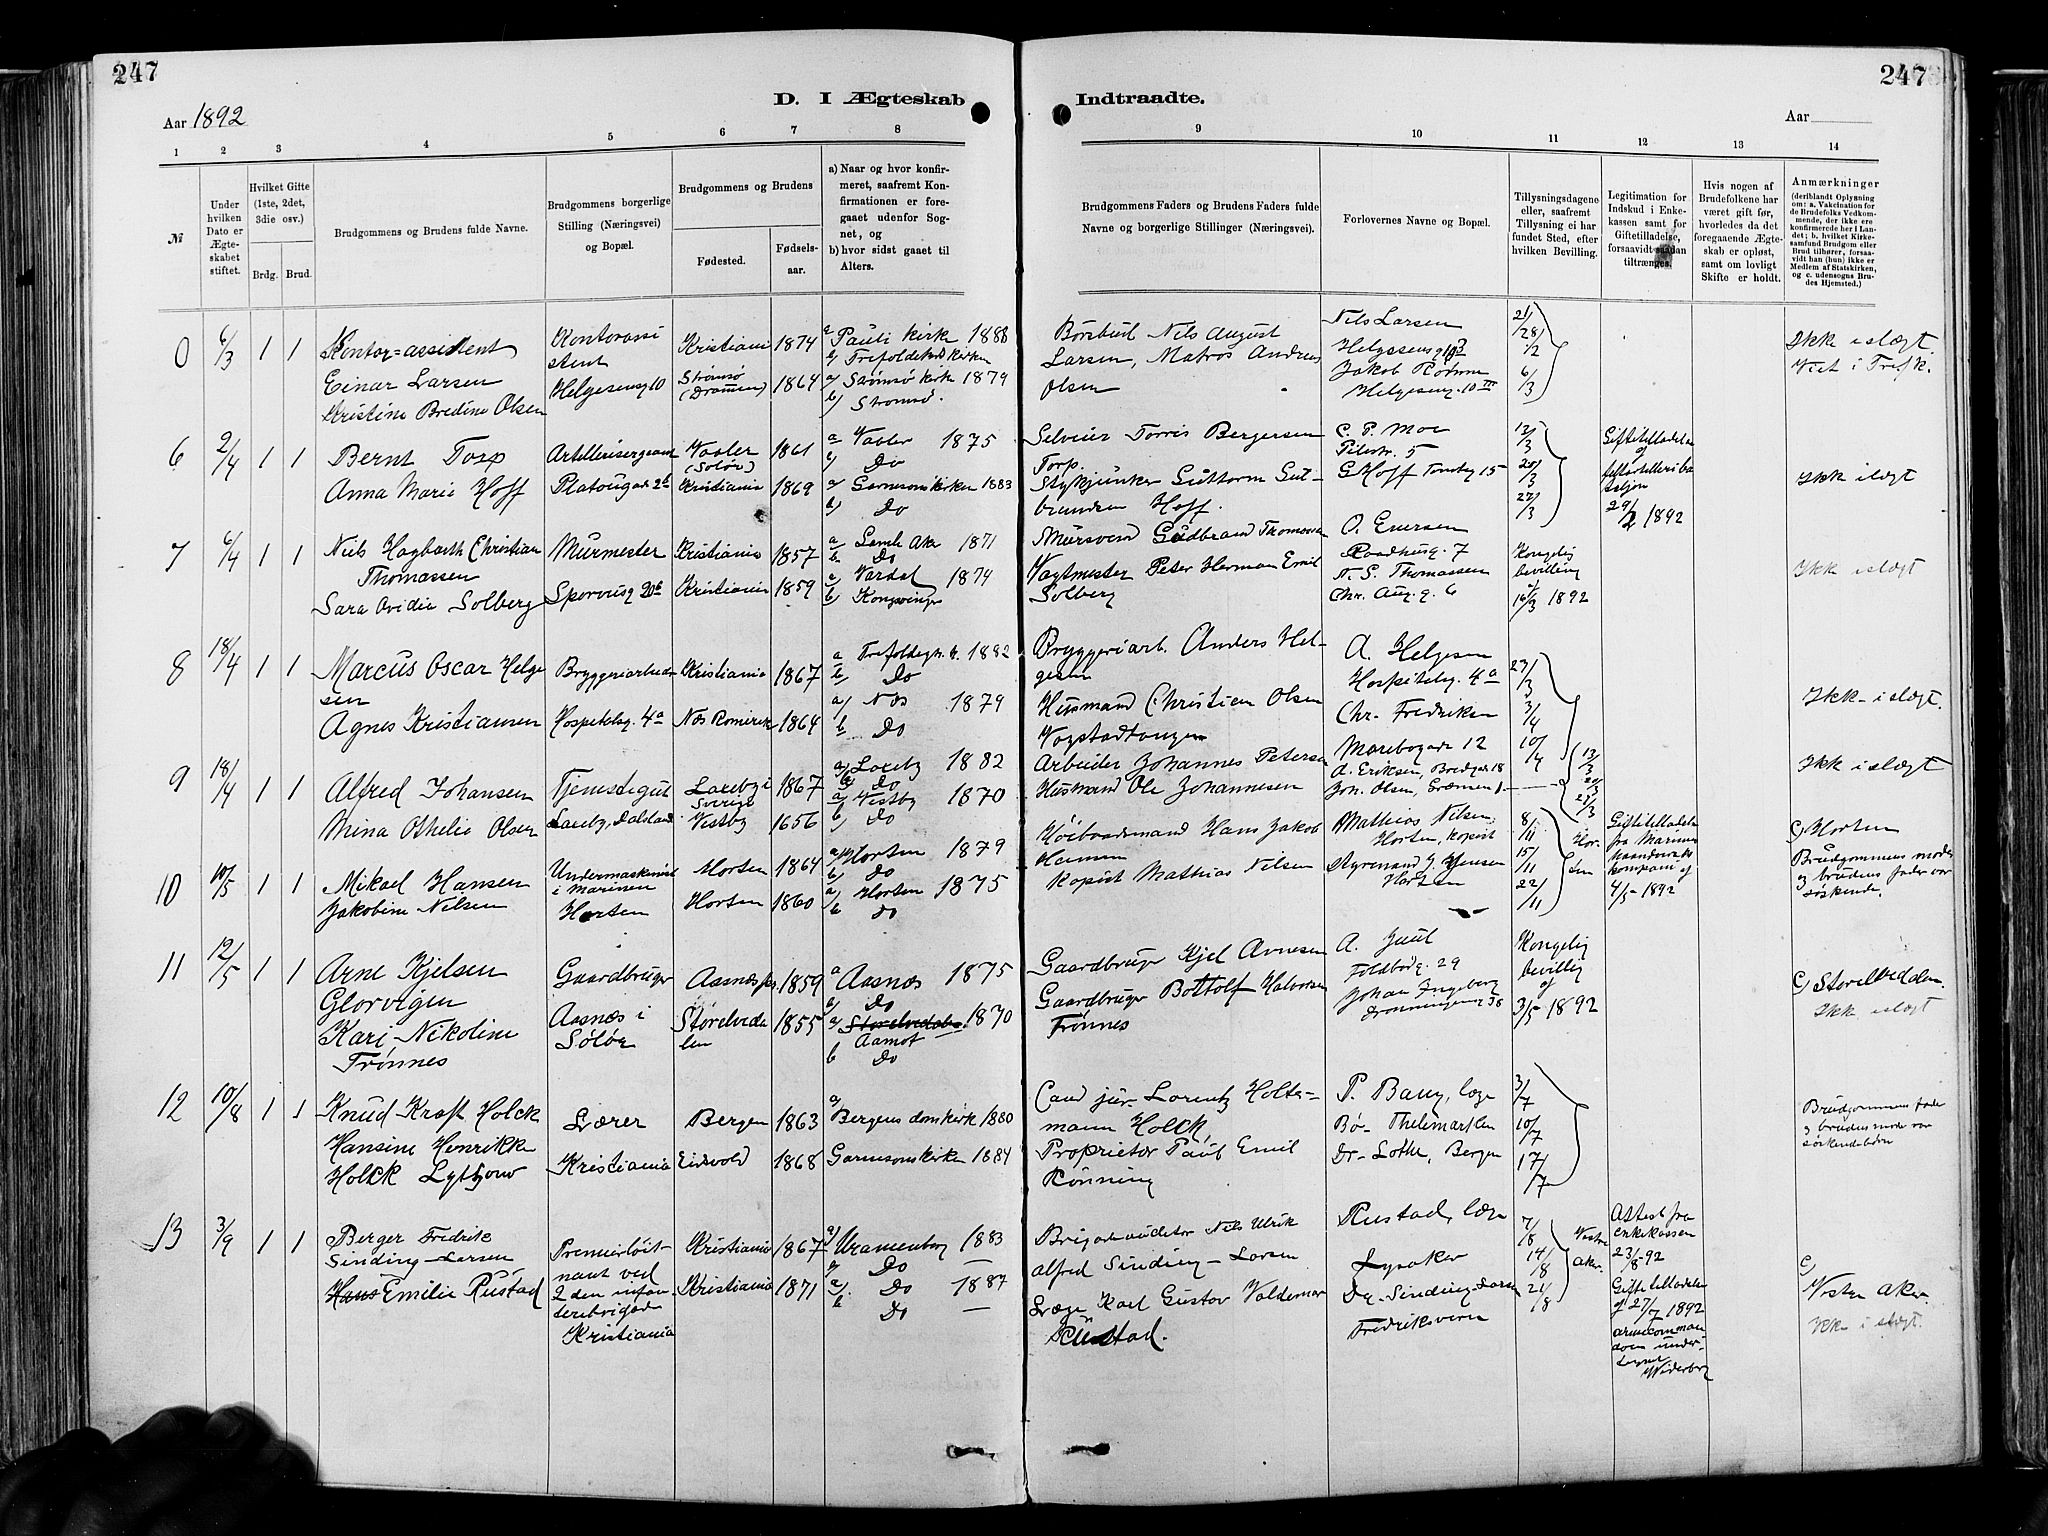 247
247
D. I Ægteskab
Indtraadte.
Aar 1892
Aar
1 2 3 4 5 6 7 8
9 10 11 12 13 14
№
Under hvilken Dato er Ægteskabet stiftet.
Hvilket Gifte (1ste, 2det, 3die osv.)
Brdg. Brud.
Brudgommens og Brudens fulde Navne.
Brudgommens borgerlige Stilling (Næringsvei) og Bopæl.
Brudgommens og Brudens
Fødested.
Fødselsaar.
a) Naar og hvor konfirmeret, saafremt Konfirmationen er foregaaet udenfor Sognet, og
b) hvor sidst gaaet til Alters.
Brudgommens Faders og Brudens Faders fulde Navne og borgerlige Stillinger (Næringsvei).
Forlovernes Navne og Bopæl.
Tillysningsdagene eller, saafremt Tillysning ei har fundet Sted, efter hvilken Bevilling.
Legitimation for Indskud i Enkekassen samt for Giftetilladelse, forsaavidt saadan tiltrænges.
Hvis nogen af Brudefolkene har været gift før, hvorledes da det foregaaende Ægteskab er opløst, samt om lovligt Skifte er holdt.
Anmærkninger (deriblandt Oplysning om: a. Vakcination for de Brudefolks Vedkommende, der ikke ere konfirmerede her i Landet; b. hvilket Kirkesamfund Brudgom eller Brud tilhører, forsaavidt han (hun) ikke er Medlem af Statskirken, og c. udensogns Brudes Hjemsted.)
0 6/3 1 1 Kontor=assistent
Einar Larsen
Kristine Bredine Olsen
Kontorassistent
Helgesensg 10
Kristiania 1874
Strømsø (Drammen) 1864
a Pauli kirke 1888
a) Strømsø kirke 1879
b) Strømsø.
Børsbud Nils August
Larsen, Matros Andreas
Olsen
Nils Larsen
Helgesens g
Jakob
Helgeseng. 10 III
21/ 28/ 1/2 6/3
Ikk i slægt.
6 2/4 1 1 Bernt Torp
Anna Marie Hoff
Artillerisergeant
Platousgade 26
Vaaler (Solør) 1861
Kristiania 1869
a Vaaler 1875
b) Do
a) Garnisonskirken 1883
b) Do
Selveier Torris Bergersen
Torp.
Stykjunker Guttorm Gulbrandsen Hoff.
C. P. Moe
Pilestr. 5
G Hoff Tomteg 15
13/3 20/3 27/3
Giftetilladelse
af
29/2 1892
Ikk i slægt
7 6/4 1 1 Nils Hagbarth Christian
Thomassen
Sara Ovidie Solberg
Murmester
Kristiania 1857
Kristiania 1859
a Gamle Aker 1871
b Do
a) Vardal 1874
b) Kongsvinger
Mursvend Gudbrand Thomassen
Vagtmester Peter Herman Emil
Solberg
O. Evensen
Raadhusg. 7
N. S. Thomassen
Chr. Aug. g. 6
Kongelig
bevilling
16/3 1892
Ikk i slægt
8 18/4 1 1 Marcus Oscar Helgesen
Agnes Kristiansen
Bryggeriarbeider
Hospitalsg. 4a
Kristiania 1867
Næs Romerike 1864
a Trefoldigh. k. 1882
b) Do
a) Næs 1879
b Do
Bryggeriarb. Anders Helgesen
Husmand Christian Olsen
A. Helgesen
Hospitalsg. 4a
Chr. Fredriksen
Marebogade 12
27/3 3/4 10/4
Ikk i slægt.
9 18/4 1 1 Alfred Johansen
Mina Othelie Olsen
Tjenestegut
Laxeby, Dalsland
Laxeby i Sverige 1867
Vestby 1656
a) Laxeby 1882
b) Do
a) Vestby 1870
b) Do
Arbeider Johannes Petersen
Husmand Ole Johannesen
A. Eriksen, Bredgade 18
Joh. Olsen,
13/3 20/3 27/3
Ikk i slægt
10 10/5 1 1 Mikael Hansen
Jakobine Nilsen
Undermaskinist
i marinen
Horten
Horten 1864
Horten 1860
a) Horten 1879
b) Do
a) Horten 1875
b Do
Hans Jakob
Kopist Mathias Nilsen
Mathias Nilsen,
Horten, kopist
Styrmand J Hansen
Horten
8/11 15/11 22/11
Horten
Giftetilladelse
fra Marinens
kompani af
4/5 1892
c) Horten
Brudgommens moder
og brudens fader var
søskende.
11 12/5 1 1 Arne Kjelsen
Glorvigen
Kari Nikoline
Trønnes
Gaardbruger
Aasnæs i
Solør
Aasnæs 1859
Storelvedalen 1855
a Aasnæs 1875
b) Do
a) Storelvedalen 1870
Aamot
b Do
Gaardbruger Kjel Arnesen
Gaardbruger Bottolf Halvorsen
Trønnes
A. Juul
Toldbodg. 29
Johan Ingeberg
Dronningensg 38
Kongelig
bevillig
af
3/5 1892
c) Storelvedalen
Ikk i slægt
12 10/8 1 1 Knud Kraft Holck
Hansine Henrikke
Holck
Lærer
Kristiania
Bergen 1863
Eidsvold 1868
a) Bergens domkirk 1880
Garnisonskirken 1884
Cand jur. Lorentz Holtermann Holck,
Proprietær Paul Emil
Rønning
P. Bang, læge
Bø – Thelemarken
Dr. Lothe, Bergen
3/7 10/7 17/7
Brudgommens fader
og brudens mode var
søskendebørn
13 3/9 1 1 Berger Fredrik
Sinding-Larsen
Hans Emilie Rustad
Premierløitnant ved
2 den infanteribrigade
Kristiania
Kristiania 1867
Kristiania 1871
a) Uranienborg 1883
b Do —
a). Do 1887
b Do —
Brigadeauditør Nils Ulrik
Alfred Sinding-Larsen
Læge Karl Gustav Valdemar
Rustad.
Rustad, læge
Lysaker
Dr. Sinding-Larsen
Fredriksværn
7/8 14/8 21/8
Vestre
Aker.
Attest fra
enkekassen
23/8-92
Giftetilladelse
af 27/7 1892
c)
Vestre Aker.
Ikk i slægt.